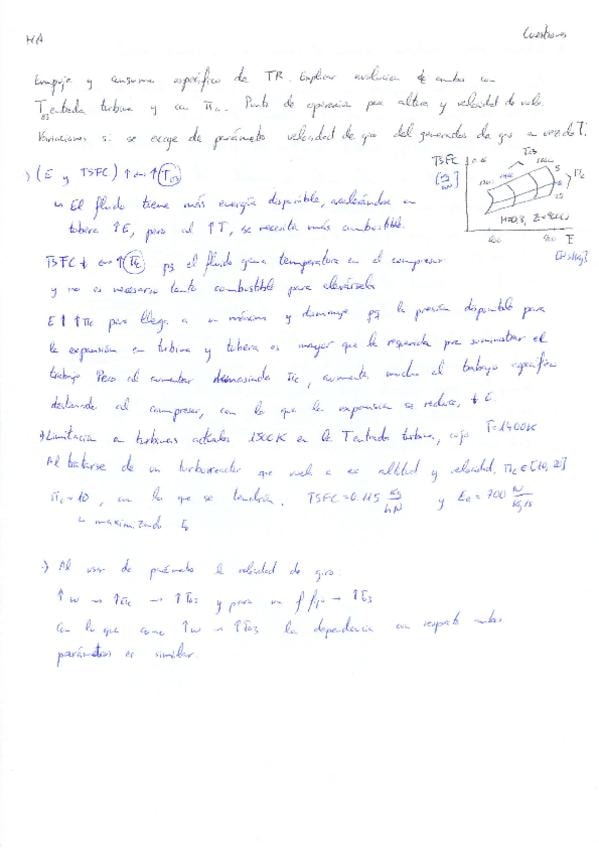 Cuestiones
Empuje y consumo específico de TR. Explicar evolución de ambos con
T03 entrada turbina y con πc. Punto de operación para altura y velocidad de vuelo.
Variaciones si se escoge de parámetro velocidad de giro del generador de gas a vez de T.
·) (E y TSFC) ↑ ↑ T03
El fluido tiene más energía disponible, acelerándose en
tobera ↑E, pero al ↑T, se necesita más combustible.
TSFC ↓ ↑ πc pq el fluido gana temperatura en el compresor
y no es necesario tanto combustible para elevársela
E ↑ ↑ πc pero llega a un máximo y disminuye pq la presión disponible para
la expansión en turbina y tobera es mayor que la requerida para suministrar el
trabajo. Pero al aumentar demasiado πc, aumenta mucho el trabajo específico
destinado al compresor, con lo que la expansión se reduce, ↓ E.
·) Limitación en turbinas actuales 1500K en la T entrada turbina, cojo T=1400K
Al tratarse de un turborreactor que vuela a esa altitud y velocidad, πc ∈ [10, 20]
πc ~ 10, con lo que se tendría. TSFC = 0.115 kg/hN y E0 = 700 N/kg/s
maximizando E
·) Al usar de parámetro la velocidad de giro:
↑ w → ↑ πc → ↑ T02 y para un f fijo → ↑ T03
Con lo que como ↑ w → ↑ T03 la dependencia con respecto ambos
parámetros es similar.
TSFC
[kg/hN]
T03
πc
5
15
600
900
E
[N s/kg]